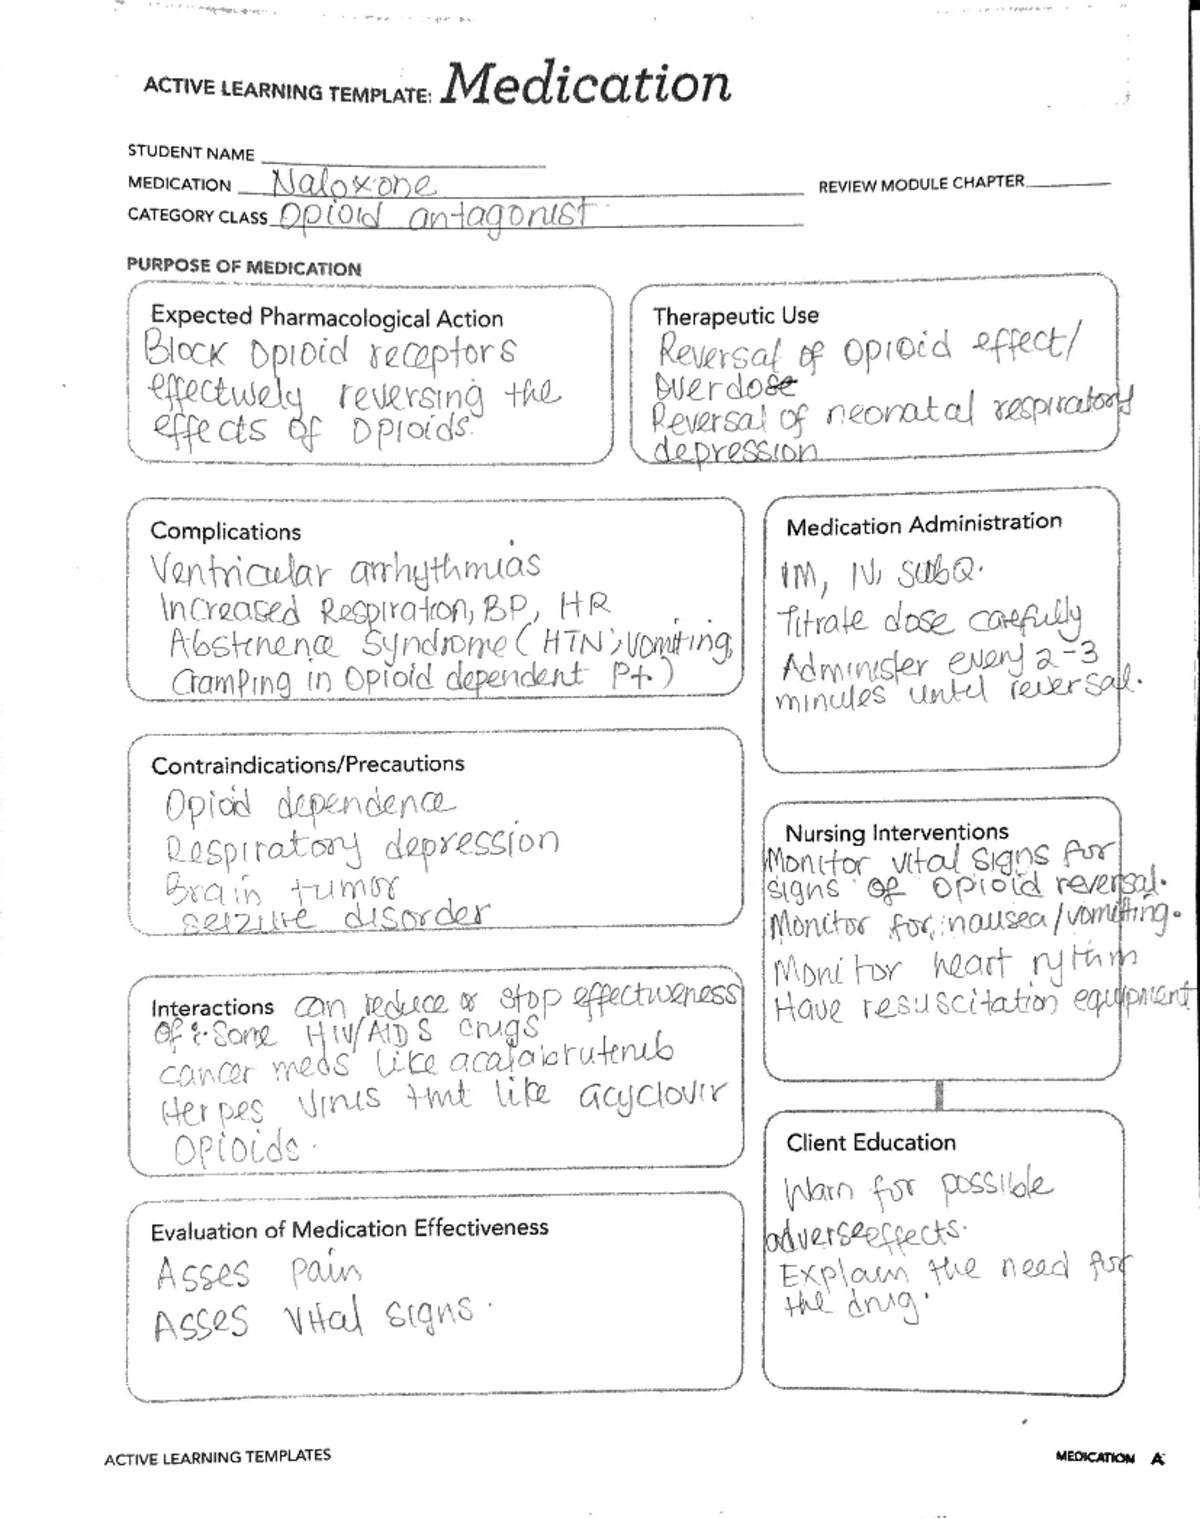 ACTIVE LEARNING TEMPLATE: Medication
STUDENT NAME
MEDICATION Naloxone
REVIEW MODULE CHAPTER
CATEGORY CLASS Opioid antagonist
PURPOSE OF MEDICATION
Expected Pharmacological Action
Block Opioid receptors
effectively reversing the
effects of Opioids.
Therapeutic Use
Reversal of opioid effect/
overdose
Reversal of neonatal respiratory
depression
Complications
Ventricular arrhythmias
Increased Respiration, BP, HR
Abstinence Syndrome (HTN, vomiting,
Cramping in Opioid dependent Pt.)
Medication Administration
IM, IV, subQ.
Titrate dose carefully
Administer every 2-3
minutes until reversal.
Contraindications/Precautions
Opioid dependence
Respiratory depression
Brain tumor
seizure disorder
Nursing Interventions
Monitor vital signs for
signs of opioid reversal.
Monitor for nausea/vomitting.
Monitor heart rythm
Have resuscitation equipment
Interactions can reduce or stop effectiveness
of: Some HIV/AIDS drugs
cancer meds like acalabrutenib
Herpes Virus tmt like acyclovir
Opioids.
Client Education
Warn for possible
adverse effects.
Explain the need for
the drug.
Evaluation of Medication Effectiveness
Asses pain
Asses vital signs.
ACTIVE LEARNING TEMPLATES
MEDICATION A